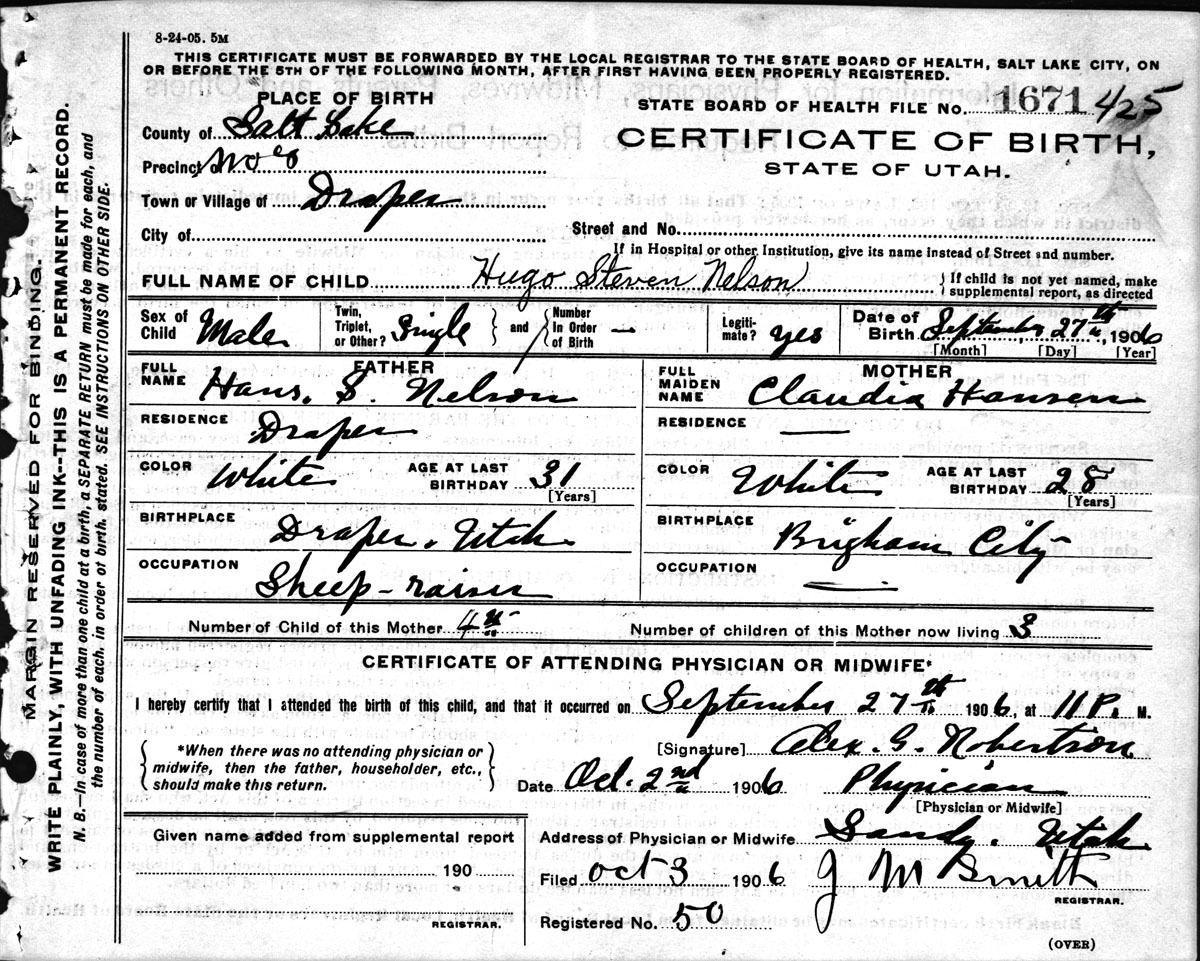 8-24-05. 5M
THIS CERTIFICATE MUST BE FORWARDED BY THE LOCAL REGISTRAR TO THE STATE BOARD OF HEALTH, SALT LAKE CITY, ON
OR BEFORE THE 5TH OF THE FOLLOWING MONTH, AFTER FIRST HAVING BEEN PROPERLY REGISTERED.
PLACE OF BIRTH
STATE BOARD OF HEALTH FILE No. 1671 425
County of Salt Lake
CERTIFICATE OF BIRTH,
Precinct of
STATE OF UTAH.
Town or Village of Draper
City of Street and No.
If in Hospital or other Institution, give its name instead of Street and number.
FULL NAME OF CHILD Hugo Steven Nelson { If child is not yet named, make
supplemental report, as directed
Sex of Child Male Twin, Triplet, or Other? Single } and { Number In Order of Birth — Legiti-mate? yes Date of Birth September, 27th, 1906
[Month] [Day] [Year]
FATHER MOTHER
FULL NAME Hans. S. Nelson FULL MAIDEN NAME Claudia Hansen
RESIDENCE Draper RESIDENCE —
COLOR White AGE AT LAST BIRTHDAY 31 [Years] COLOR White AGE AT LAST BIRTHDAY 28 [Years]
BIRTHPLACE Draper, Utah. BIRTHPLACE Brigham City
OCCUPATION Sheep-raiser OCCUPATION —
Number of Child of this Mother 4th Number of children of this Mother now living 3
CERTIFICATE OF ATTENDING PHYSICIAN OR MIDWIFE*
I hereby certify that I attended the birth of this child, and that it occurred on September 27th 1906, at 11 P. M.
*When there was no attending physician or
midwife, then the father, householder, etc.,
should make this return.
[Signature] Alex. G. Robertson
Date Oct. 2nd 1906 Physician
[Physician or Midwife]
Given name added from supplemental report
190
REGISTRAR.
Address of Physician or Midwife Sandy. Utah
Filed Oct 3 1906 J M Smith
REGISTRAR.
Registered No. 50
(OVER)
MARGIN RESERVED FOR BINDING.
WRITE PLAINLY, WITH UNFADING INK--THIS IS A PERMANENT RECORD.
N. B.—In case of more than one child at a birth, a SEPARATE RETURN must be made for each, and
the number of each, in order of birth, stated. SEE INSTRUCTIONS ON OTHER SIDE.